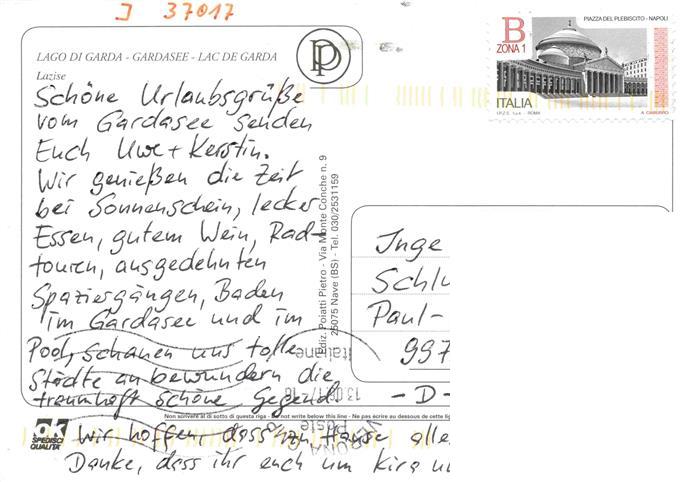 J 37017
LAGO DI GARDA - GARDASEE - LAC DE GARDA
Lazise
PD
B
ZONA 1
PIAZZA DEL PLEBISCITO - NAPOLI
ITALIA
I.P.Z.S. S.p.A. - ROMA
Schöne Urlaubsgrüße
vom Gardasee senden
Euch Uwe + Kerstin.
Wir genießen die Zeit
bei Sonnenschein, lecker
Essen, gutem Wein, Rad-
touren, ausgedehnten
Spaziergängen, Baden
im Gardasee und im
Pool, schauen uns tolle
Städte an bewundern die
traumhaft schöne Gegend.
Wir hoffen, dass zu Hause alle
Danke, dass ihr euch um Kira
Ediz. Poiatti Pietro - Via Monte Conche n. 9
25075 Nave (BS) - Tel. 030/2531159
Inge
Schl
Paul-
997
- D -
Non scrivere al di sotto di questa riga - Do not write below this line - Ne pas écrire au dessous de cette lig
ok
SPEDISCI
QUALITÀ
VERONA
Poste
italiane